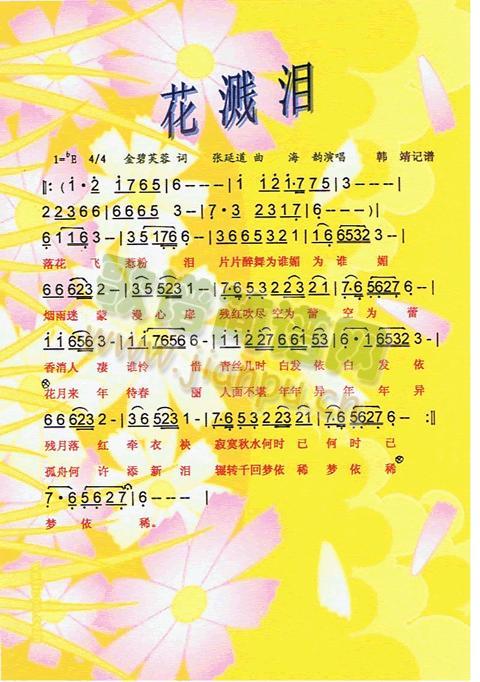 花溅泪
1=ᵇE 4/4 金碧芙蓉 词 张延道 曲 海 韵演唱 韩 靖记谱
‖: ( i · 2̇ i765 | 6 - - - | i i2̇i·775 | 3 - - - |
22366 | 6665 3 - | 7 · 3 2317 | 6 - - - ) |
6 116 3 - | 35176 6 - | 66653212 | i 166532 3 - |
落花 飞 惹粉 泪 片片醉舞为谁媚 为 谁 媚
666232 - | 355231 - | 7·65322 2 - | 7·656276 - |
烟雨迷 蒙 漫心扉 残红吹尽 空为 蕾 空 为 蕾
ii6563 - | ii76566 - | 7·1227 6153 | 6·i65323 - |
香消人 凄 谁怜 惜 青丝几时 白发 依 白 发 依
花月来 年 待春 丽 人面不堪 年年 异 年 年 异
666232 - | 355231 - | 7·653 2212 - | 7·656276 - :‖
残月落 红 牵衣 袂 寂寞秋水何时 已 何 时 已
孤舟何 许 添新 泪 辗转千回梦依 稀 梦 依 稀
7 · 6 5627 | 6 - - - | 6 - - - ‖
梦 依 稀。